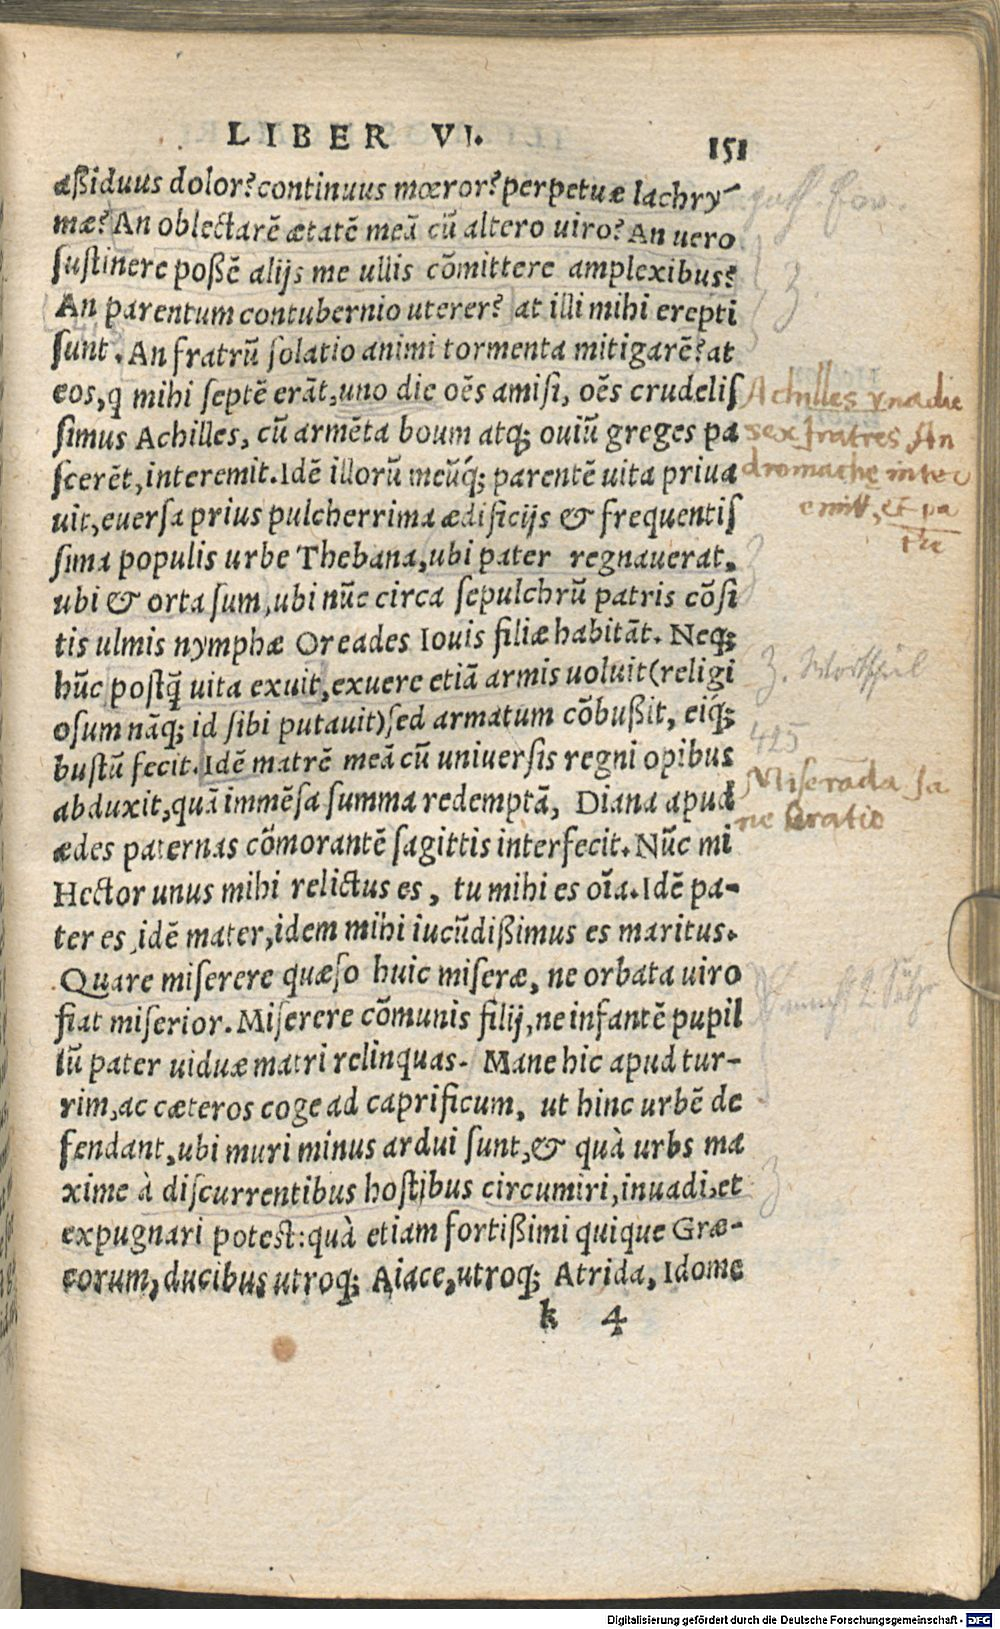 LIBER VI. 151
æßiduus dolor? continuus mœror? perpetuæ lachry-
mæ? An oblectarē ætatē meā cū altero uiro? An uero
ſuſtinere poßē alijs me ullis cōmittere amplexibus?
An parentum contubernio uterer? at illi mihi erepti
ſunt. An fratrū ſolatio animi tormenta mitigarē? at
eos, q mihi ſeptē erāt, uno die oēs amiſi, oēs crudeliſ
ſimus Achilles, cū armēta boum atq; ouiū greges pa
ſcerēt, interemit. Idē illorū meūq́; parentē uita priua
uit, euerſa prius pulcherrima ædificijs & frequentiſ
ſima populis urbe Thebana, ubi pater regnauerat,
ubi & orta ſum, ubi nūc circa ſepulchrū patris cōſi
tis ulmis nymphæ Oreades Iouis filiæ habitāt. Neq;
hūc poſtq̄ uita exuit, exuere etiā armis uoluit (religi
oſum nāq; id ſibi putauit) ſed armatum cōbußit, eiq́;
buſtū fecit. Idē matrē meā cū uniuerſis regni opibus
abduxit, quā immēſa summa redemptā, Diana apud
ædes paternas cōmorantē ſagittis interfecit. Nūc mi
Hector unus mihi relictus es, tu mihi es oīa. Idē pa-
ter es, idē mater, idem mihi iucūdißimus es maritus.
Quare miſerere quæſo huic miſeræ, ne orbata uiro
fiat miſerior. Miſerere cōmunis filij, ne infantē pupil
lū pater uiduæ matri relinquas. Mane hic apud tur-
rim, ac cæteros coge ad caprificum, ut hinc urbē de
fendant, ubi muri minus ardui ſunt, & quà urbs ma
xime à diſcurrentibus hoſtibus circumiri, inuadi, et
expugnari poteſt: quà etiam fortißimi quique Græ-
corum, ducibus utroq; Aiace, utroq; Atrida, Idome
k 4
3
Achilles vna die
sex fratres An
dromache inter
emitt, et pa
trē
3. Wortspiel
425
Miserāda sa
ne oratio
3
Digitalisierung gefördert durch die Deutsche Forschungsgemeinschaft - DFG